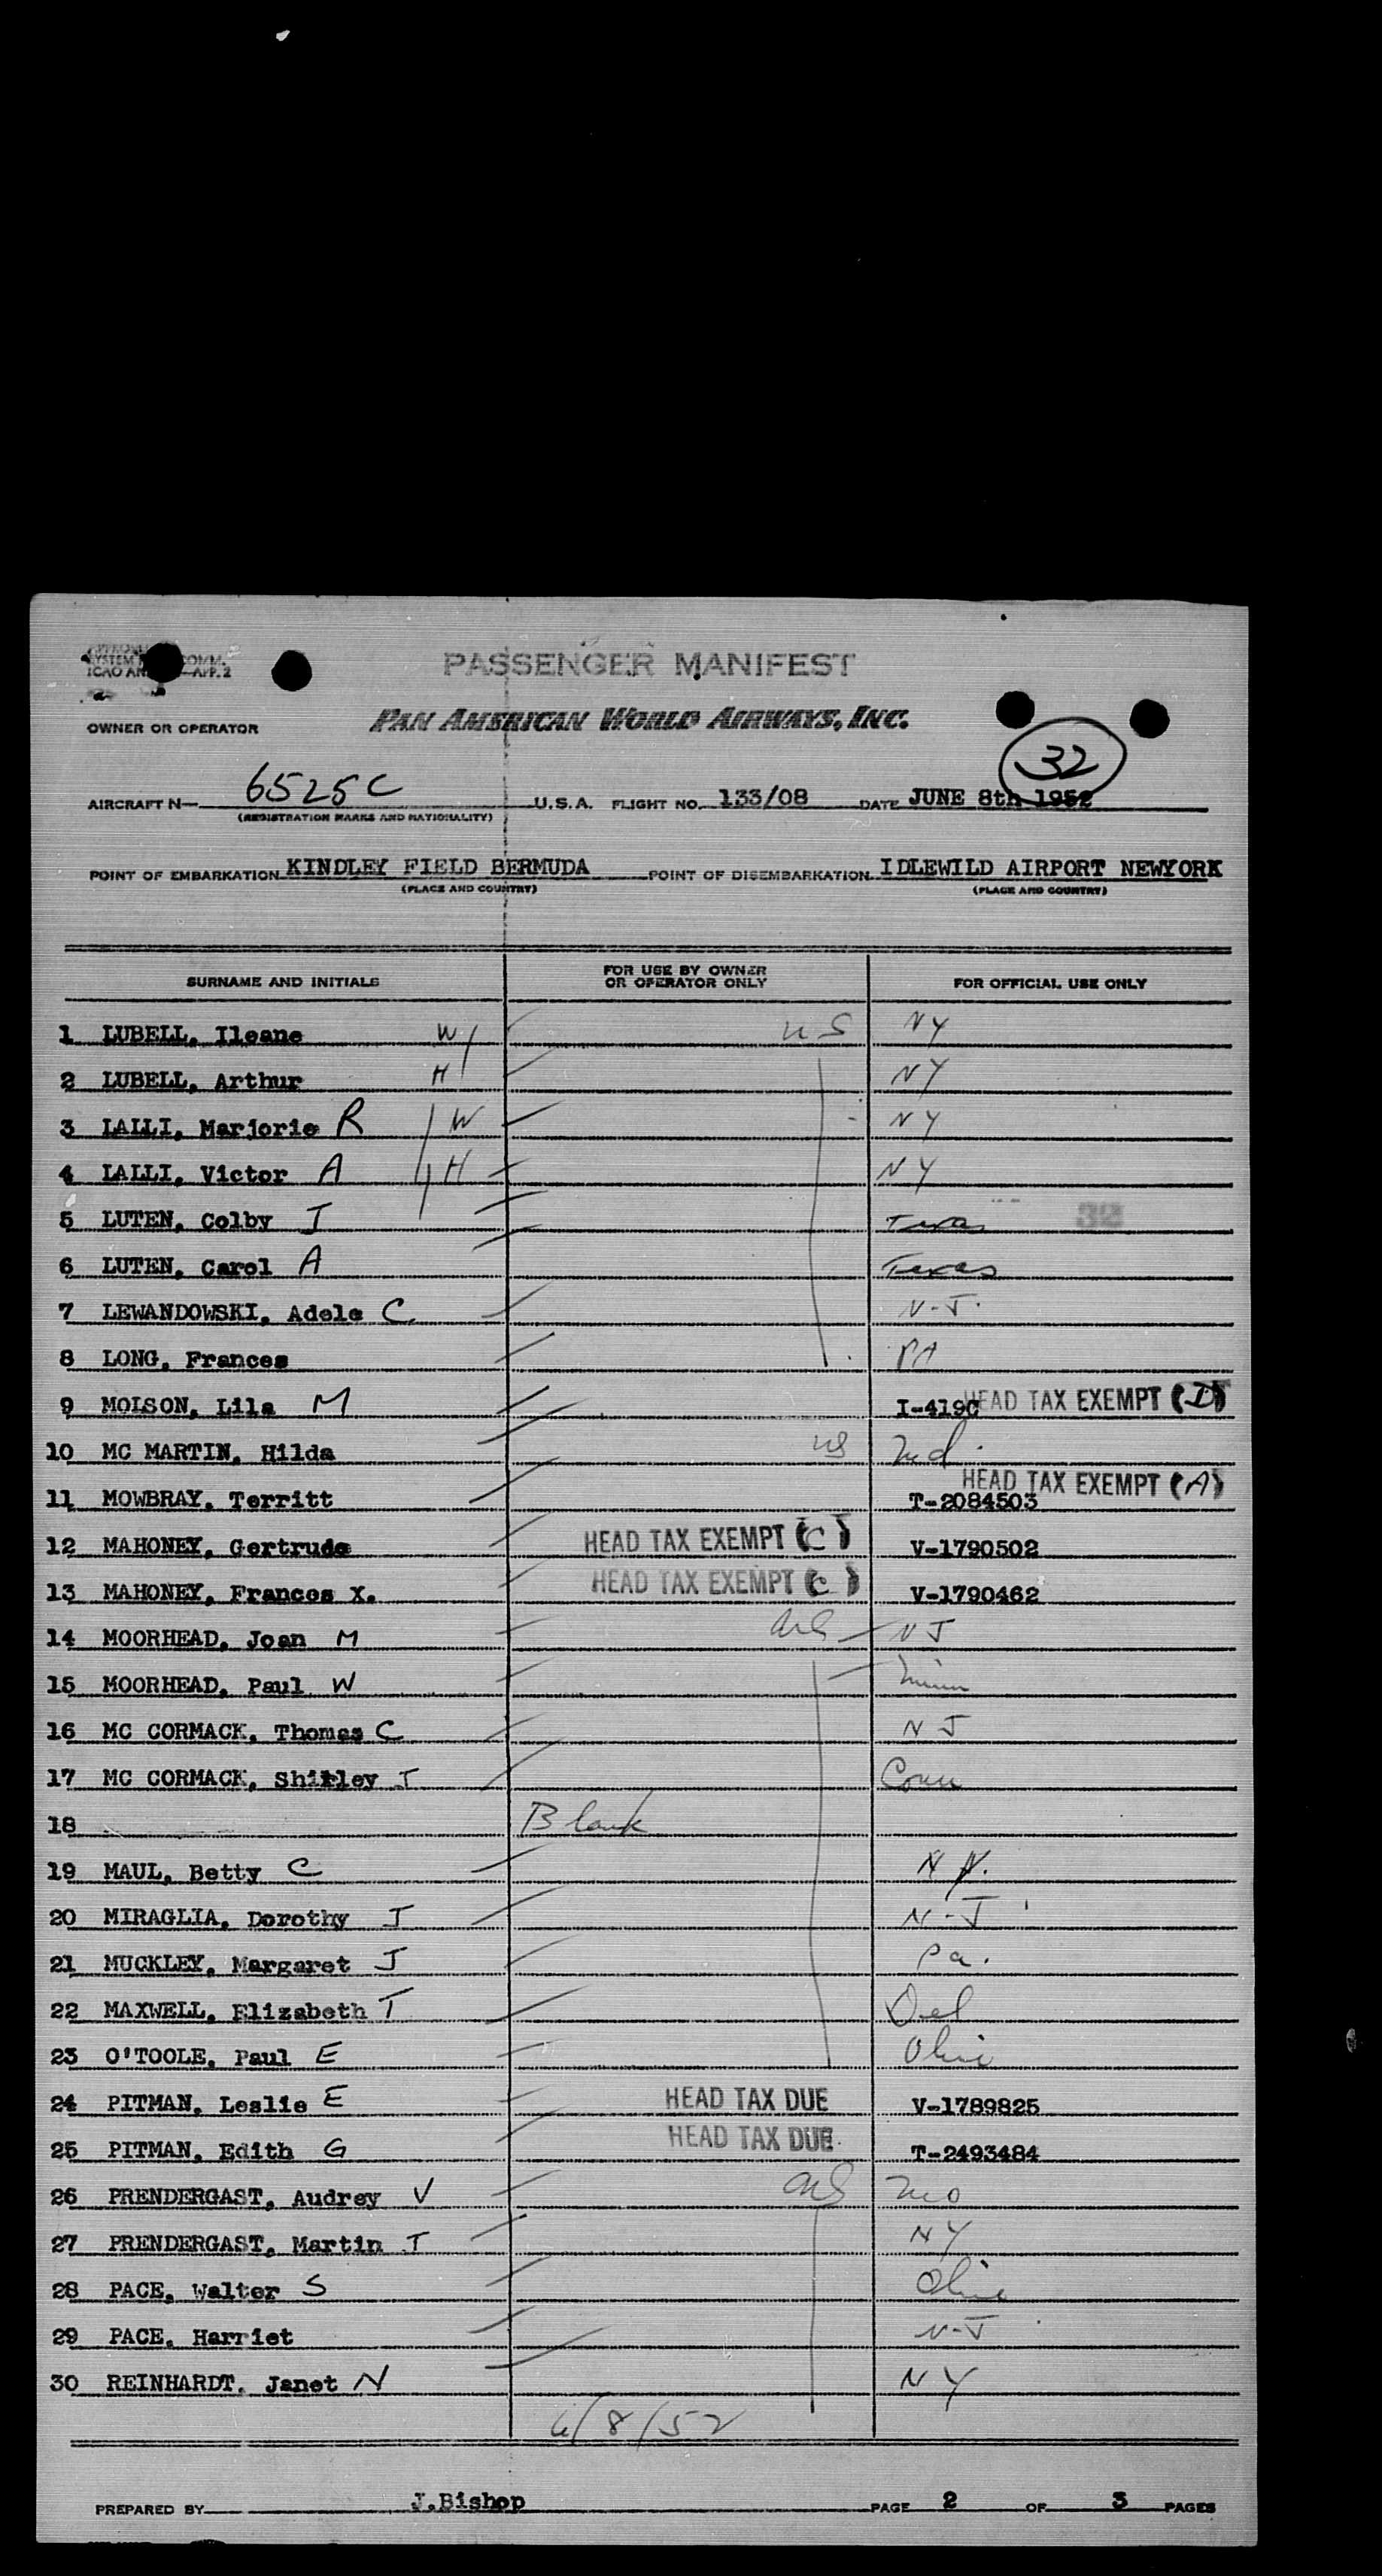 ICAO AN APP. 2
PASSENGER MANIFEST
OWNER OR OPERATOR PAN AMERICAN WORLD AIRWAYS, INC.
32
AIRCRAFT N— 6525C U.S.A. FLIGHT NO. 133/08 DATE JUNE 8th 1952
(REGISTRATION MARKS AND NATIONALITY)
POINT OF EMBARKATION KINDLEY FIELD BERMUDA POINT OF DISEMBARKATION IDLEWILD AIRPORT NEWYORK
(PLACE AND COUNTRY) (PLACE AND COUNTRY)
SURNAME AND INITIALS FOR USE BY OWNER OR OPERATOR ONLY FOR OFFICIAL USE ONLY
1 LUBELL, Ileane W US NY
2 LUBELL, Arthur H NY
3 LALLI, Marjorie R W NY
4 LALLI, Victor A H NY
5 LUTEN, Colby J Texas 32
6 LUTEN, Carol A Texas
7 LEWANDOWSKI, Adele C N-J.
8 LONG, Frances PA
9 MOLSON, Lila M I-419C HEAD TAX EXEMPT (I)
10 MC MARTIN, Hilda US Md.
11 MOWBRAY, Territt T-2084503 HEAD TAX EXEMPT (A)
12 MAHONEY, Gertrude HEAD TAX EXEMPT (C) V-1790502
13 MAHONEY, Frances X. HEAD TAX EXEMPT (C) V-1790462
14 MOORHEAD, Joan M US NJ
15 MOORHEAD, Paul W Minn
16 MC CORMACK, Thomas C NJ
17 MC CORMACK, Shirley J Conn
18 Blank
19 MAUL, Betty C N Y.
20 MIRAGLIA, Dorothy J N-J
21 MUCKLEY, Margaret J Pa.
22 MAXWELL, Elizabeth T Del
23 O'TOOLE, Paul E Ohio
24 PITMAN, Leslie E HEAD TAX DUE V-1789825
25 PITMAN, Edith G HEAD TAX DUE T-2493484
26 PRENDERGAST, Audrey V US Mo
27 PRENDERGAST, Martin J NY
28 PACE, Walter S Ohio
29 PACE, Harriet N-J
30 REINHARDT, Janet N NY
6/8/52
PREPARED BY J.Bishop PAGE 2 OF 3 PAGES